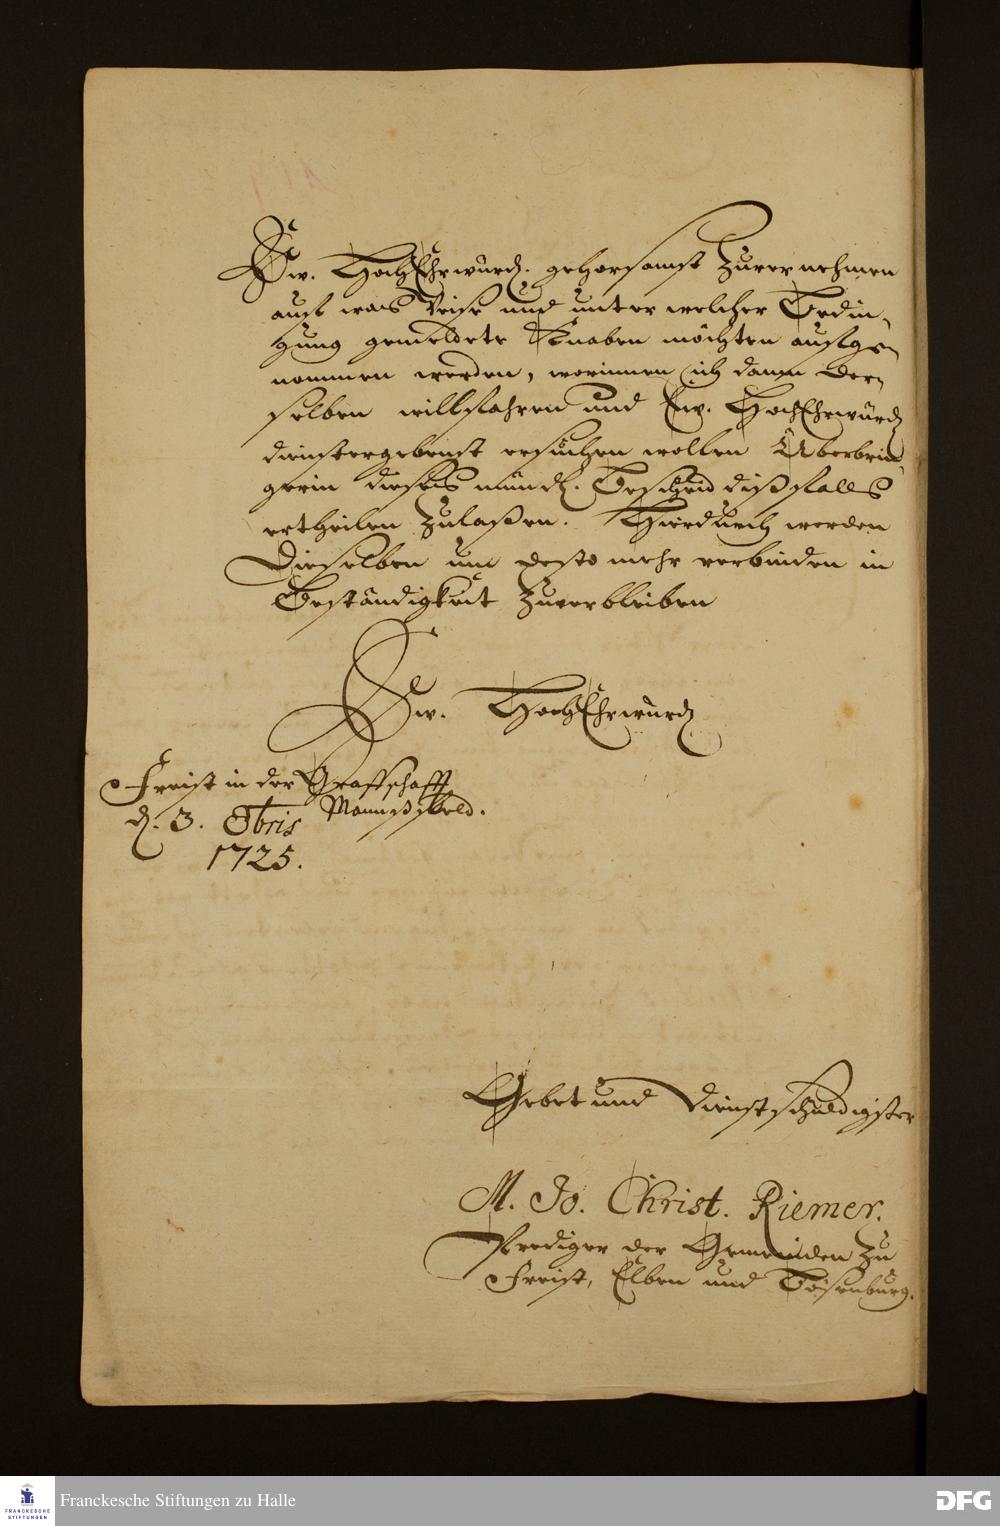 Ew. HochEhrwürd. gehorsamst zuvernehmen
auf was Weise und unter welcher Bedin-
gung gemeldete Knaben möchten aufge-
nommen werden, worinnen ich dann der-
selben willfahren und Ew. HochEhrwürd.
dienstergebenst ersuchen wollen Uberbrin-
gerin dieses mündl. Bescheid dißfalls
ertheilen zulaßen. Hierdurch werden
Dieselben um desto mehr verbinden in
Beständigkeit zuverbleiben
Ew. HochEhrwürd.
Freist in der Graffschafft
Mannßfeld.
d. 3. 8bris
1725.
Gebet und dienstschuldigster
M. Jo. Christ. Riemer.
Prediger der Gemeinden zu
Freist, Elben und Bösenburg.
FRANCKESCHE
STIFTUNGEN
Franckesche Stiftungen zu Halle
DFG